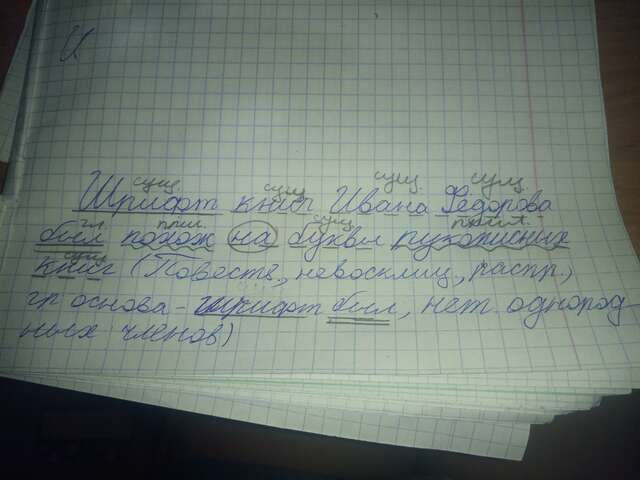 И.
сущ. сущ сущ. сущ
Шрифт книг Ивана Фёдорова
гл. прил. сущ прил.
был похож на буквы рукописных
сущ
книг (Повеств., невосклиц., распр.,
гр основа - шрифт был, нет однород-
ных членов)